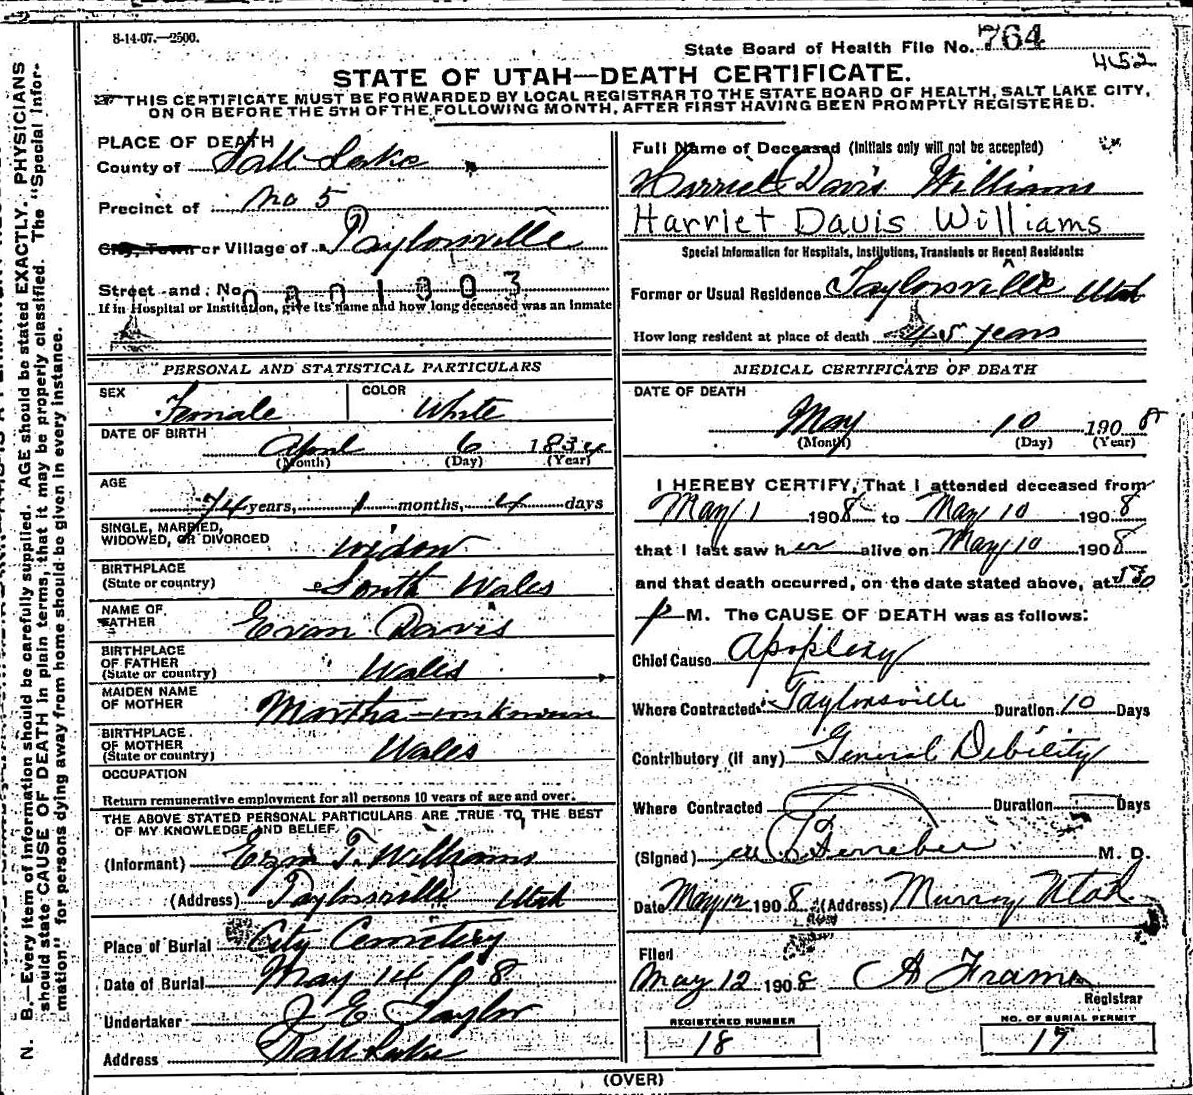 8-14-07.—2500.
State Board of Health File No. 764
452
STATE OF UTAH—DEATH CERTIFICATE.
THIS CERTIFICATE MUST BE FORWARDED BY LOCAL REGISTRAR TO THE STATE BOARD OF HEALTH, SALT LAKE CITY,
ON OR BEFORE THE 5TH OF THE FOLLOWING MONTH, AFTER FIRST HAVING BEEN PROMPTLY REGISTERED.
PLACE OF DEATH
County of Salt Lake
Precinct of No 5
City, Town or Village of Taylorsville
Street and No. 0801303
If in Hospital or Institution, give its name and how long deceased was an inmate
PERSONAL AND STATISTICAL PARTICULARS
SEX Female COLOR White
DATE OF BIRTH April 6 1834
(Month) (Day) (Year)
AGE
74 years, 1 months, 4 days
SINGLE, MARRIED,
WIDOWED, OR DIVORCED widow
BIRTHPLACE
(State or country) South Wales
NAME OF
FATHER Evan Davis
BIRTHPLACE
OF FATHER
(State or country) Wales
MAIDEN NAME
OF MOTHER Martha—unknown
BIRTHPLACE
OF MOTHER
(State or country) Wales
OCCUPATION
Return remunerative employment for all persons 10 years of age and over.
THE ABOVE STATED PERSONAL PARTICULARS ARE TRUE TO THE BEST
OF MY KNOWLEDGE AND BELIEF.
(Informant) Ezra T. Williams
(Address) Taylorsville Utah
Place of Burial City Cemetery
Date of Burial May 14/08
Undertaker J E Taylor
Address Salt Lake
Full Name of Deceased (Initials only will not be accepted)
Harriet Davis Williams
Harriet Davis Williams
Special Information for Hospitals, Institutions, Transients or Recent Residents:
Former or Usual Residence Taylorsville Utah
How long resident at place of death 45 years
MEDICAL CERTIFICATE OF DEATH
DATE OF DEATH
May 10 1908
(Month) (Day) (Year)
I HEREBY CERTIFY, That I attended deceased from
May 1 1908 to May 10 1908
that I last saw her alive on May 10 1908
and that death occurred, on the date stated above, at 530
p M. The CAUSE OF DEATH was as follows:
Chief Cause Apoplexy
Where Contracted Taylorsville Duration 10 Days
Contributory (if any) General Debility
Where Contracted Duration Days
(Signed) M. D.
Date May 12 1908 (Address) Murray Utah
Filed
May 12 1908 A Frame
Registrar
REGISTERED NUMBER
18
NO. OF BURIAL PERMIT
17
(OVER)
N. B.—Every item of information should be carefully supplied. AGE should be stated EXACTLY. PHYSICIANS
should state CAUSE OF DEATH in plain terms, that it may be properly classified. The "Special Infor-
mation" for persons dying away from home should be given in every instance.